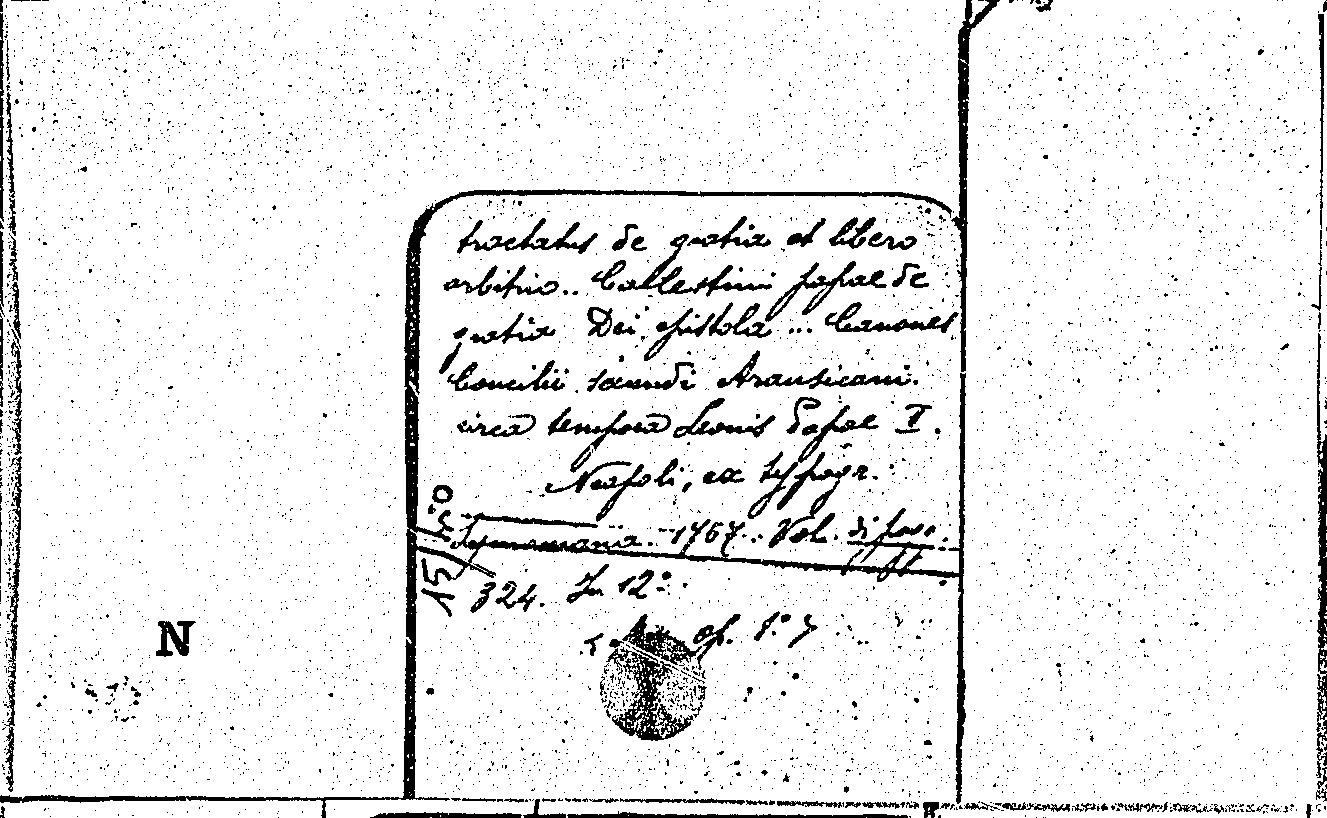 tractatus de gratia et libero
arbitrio.. Caelestini papae de
gratia Dei epistola ... Canones
Concilii secundi Arausicani.
circa tempora Leonis Papae I.
Neapoli, ex typogr.
Simoniana. 1767.. Vol. di pag.
324. In 12º.
op. 1º
15
N